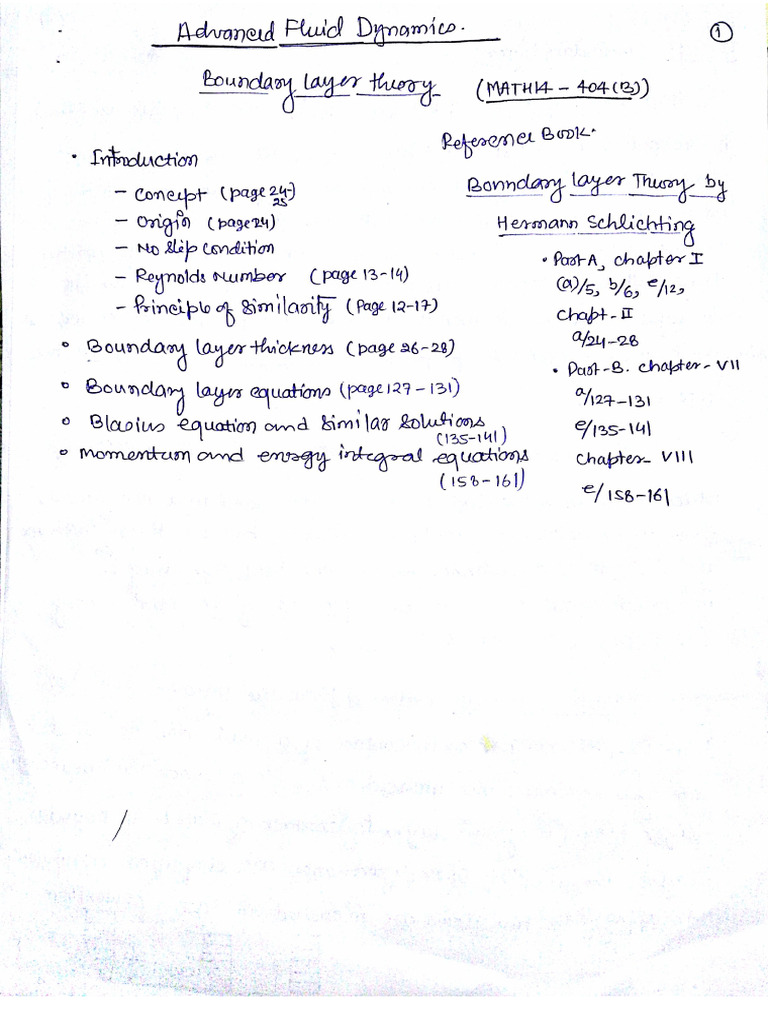 Advanced Fluid Dynamics.
①
Boundary layer theory (MATH14 - 404(B))
Reference Book.
• Introduction
Bonndary layer Theory by
Hermann Schlichting
- Concept (page 24-25)
- Origin (page 24)
- No slip condition
- Reynolds Number (page 13-14)
- Principle of Similarity (Page 12-17)
• Part A, chapter I
(a)/5, b/6, e/12,
Chapt-II
a/24-28
• Part-B. chapter-VII
a/127-131
e/135-141
chapter VIII
e/158-161
• Boundary layer thickness (page 26-28)
• Boundary layer equations (page 127-131)
• Blasius equation and similar solutions
(135-141)
• Momentum and energy integral equations
(158-161)